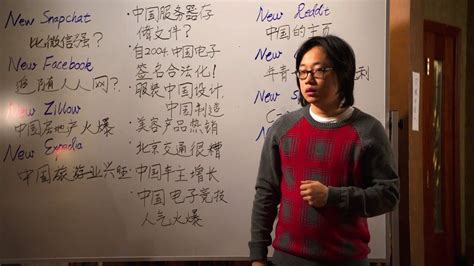 New Snapchat
比微信强?
New Facebook
人人网?
New Zillow
中国房地产火爆
New Expedia
中国旅游业兴旺
·中国服务器存
储文件?
·自2004中国电子
签名合法化!
·服装中国设计,
中国制造
·美容产品热销
·北京交通很糟
·中国车主增长
·中国电子竞技
人气火爆
New Reddit
中国的主页
New